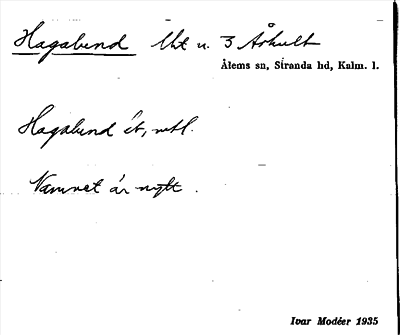 Hagalund lht u. 3 Århult
Ålems sn, Stranda hd, Kalm. l.
Hagalund
Namnet är nytt.
Ivar Modéer 1935